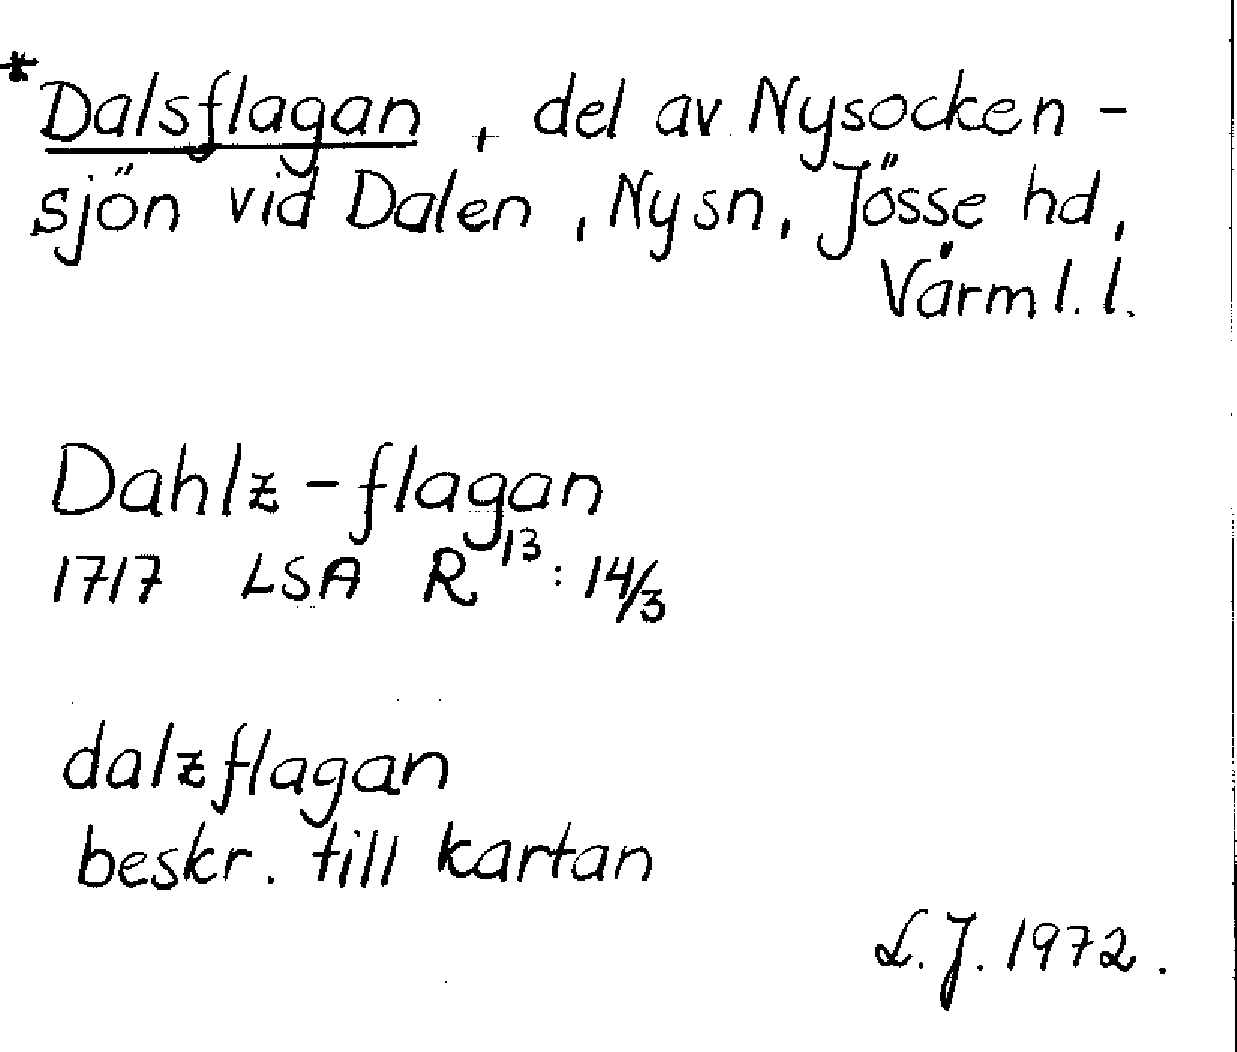 *Dalsflagan, del av Nysocken-
sjön vid Dalen, Ny sn, Jösse hd,
Värml. l.
Dahlz-flagan
1717 LSA R 13:14/3
dalzflagan
beskr. till kartan
L.J. 1972.